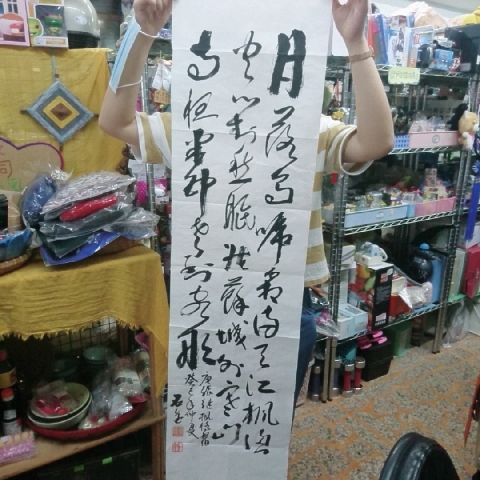 月落烏啼霜滿天江楓漁
火對愁眠姑蘇城外寒山
寺夜半鐘聲到客船
唐張繼楓橋夜泊
癸巳年仲夏